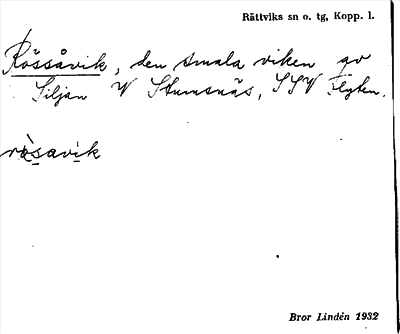 Rättviks sn o. tg, Kopp. l.
Rössåvik, den smala viken av
Siljan W Stumsnäs, SSV Flyten.
ròsavik
Bror Lindén 1932